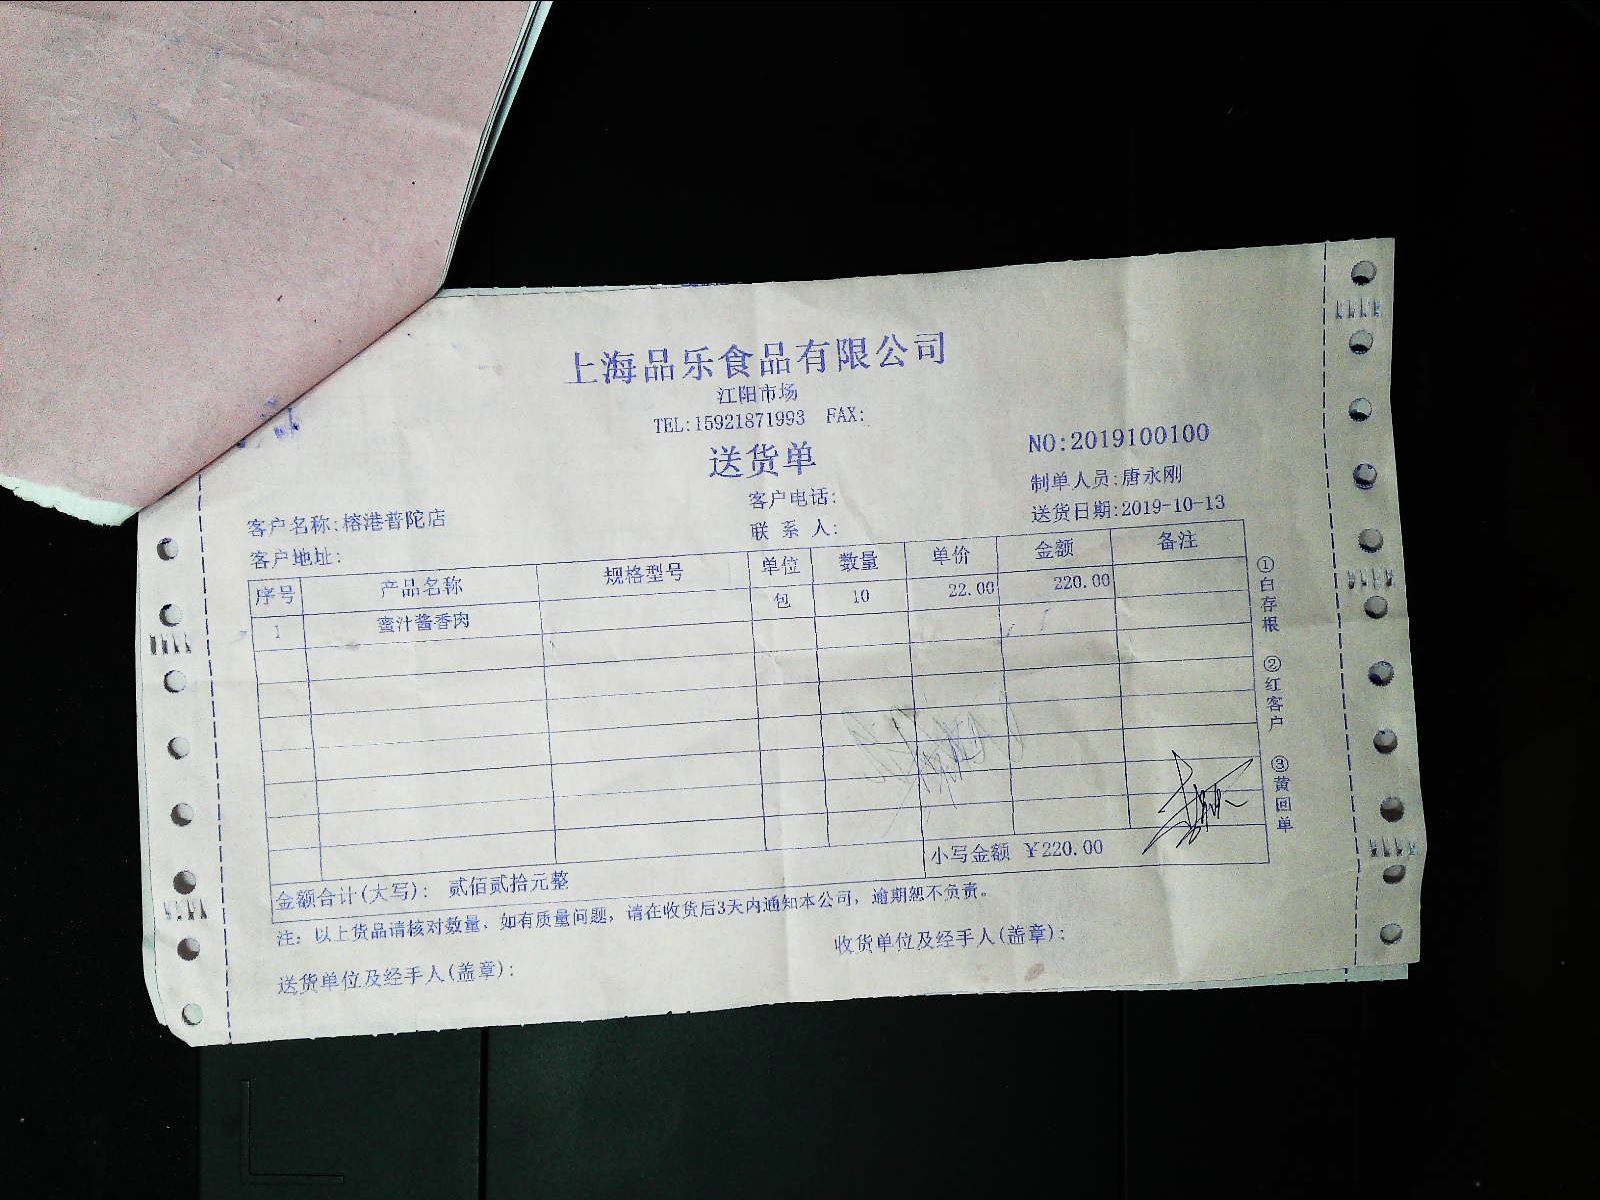 上海品乐食品有限公司
江阳市场
TEL:15921871993 FAX:
送货单
NO:2019100100
客户电话:
制单人员:唐永刚
客户名称:榕港普陀店
联系人:
送货日期:2019-10-13
客户地址:
序号 产品名称 规格型号 单位 数量 单价 金额 备注
1 蜜汁酱香肉 包 10 22.00 220.00
金额合计(大写): 贰佰贰拾元整 小写金额 ¥220.00
注: 以上货品请核对数量, 如有质量问题, 请在收货后3天内通知本公司, 逾期恕不负责。
送货单位及经手人(盖章): 收货单位及经手人(盖章):
①白存根 ②红客户 ③黄回单